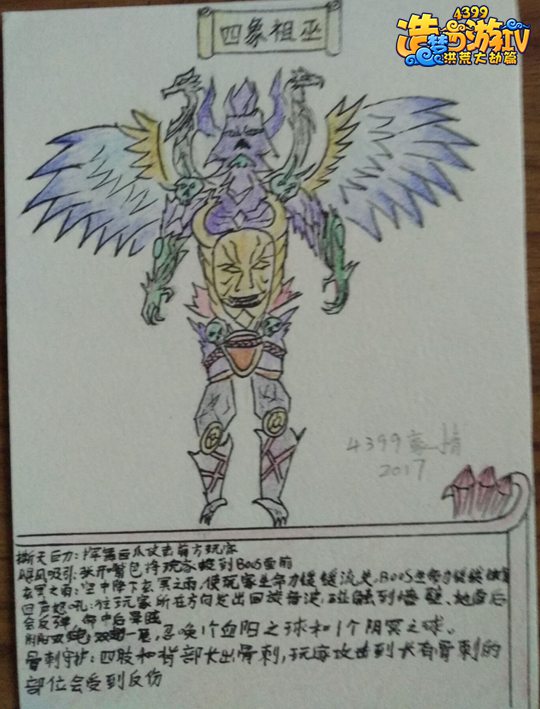 四象祖巫
4399
造梦西游IV
洪荒大劫篇
4399
2017
撕天巨力:挥舞巨爪攻击前方玩家
飓风吸引:张开嘴巴将玩家吸到BOOS面前
玄冥之雨:空中降下玄冥之雨,使玩家生命力缓缓流失,BOOS生命力缓缓恢复
回声怒吼:往玩家所在方向发出回旋音波,碰触到墙壁、地面后
会反弹,命中后晕眩
一晃,召唤1个血阳之球和1个阴冥之球。
骨刺守护:四肢和背部长出骨刺,玩家攻击到长有骨刺的
部位会受到反伤